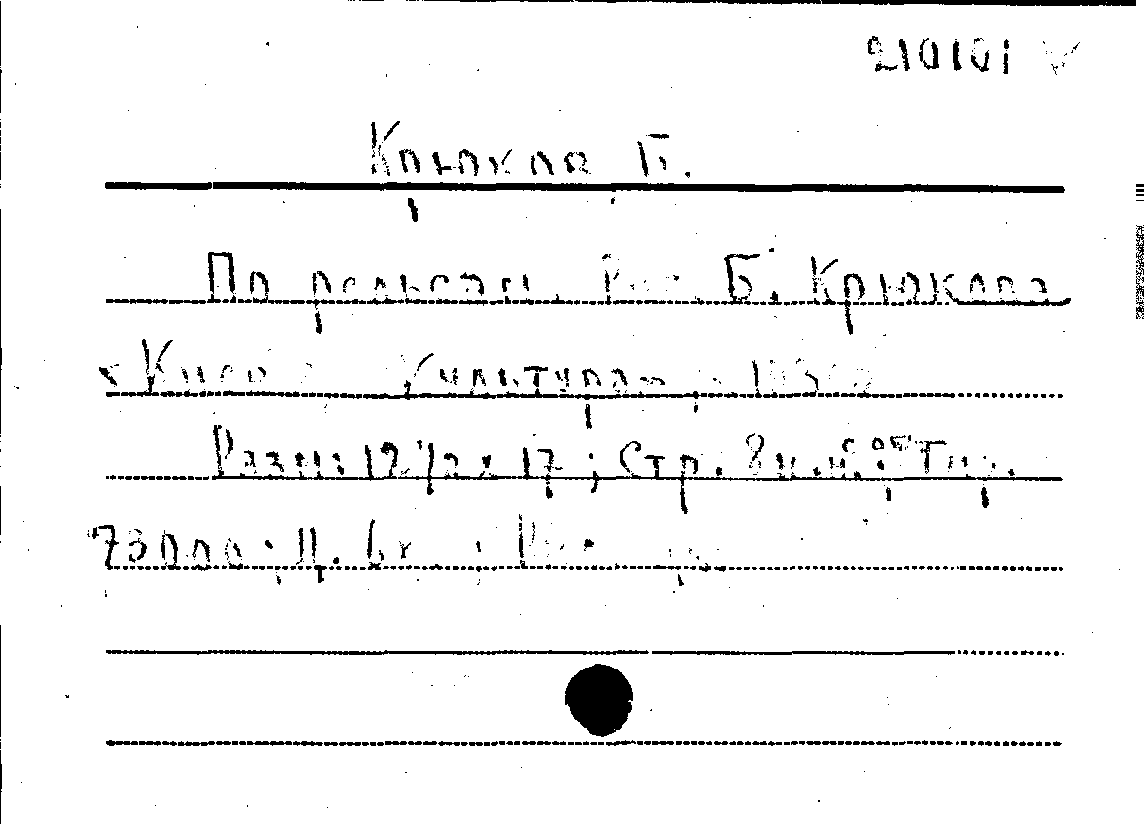 210101
Крюков Б.
По рельсам. Рис. Б. Крюкова
Киев Культура
Разм: 12 1/2 x 17; Стр. 8 н.н.; Тир.
73000; Ц. 6 к.